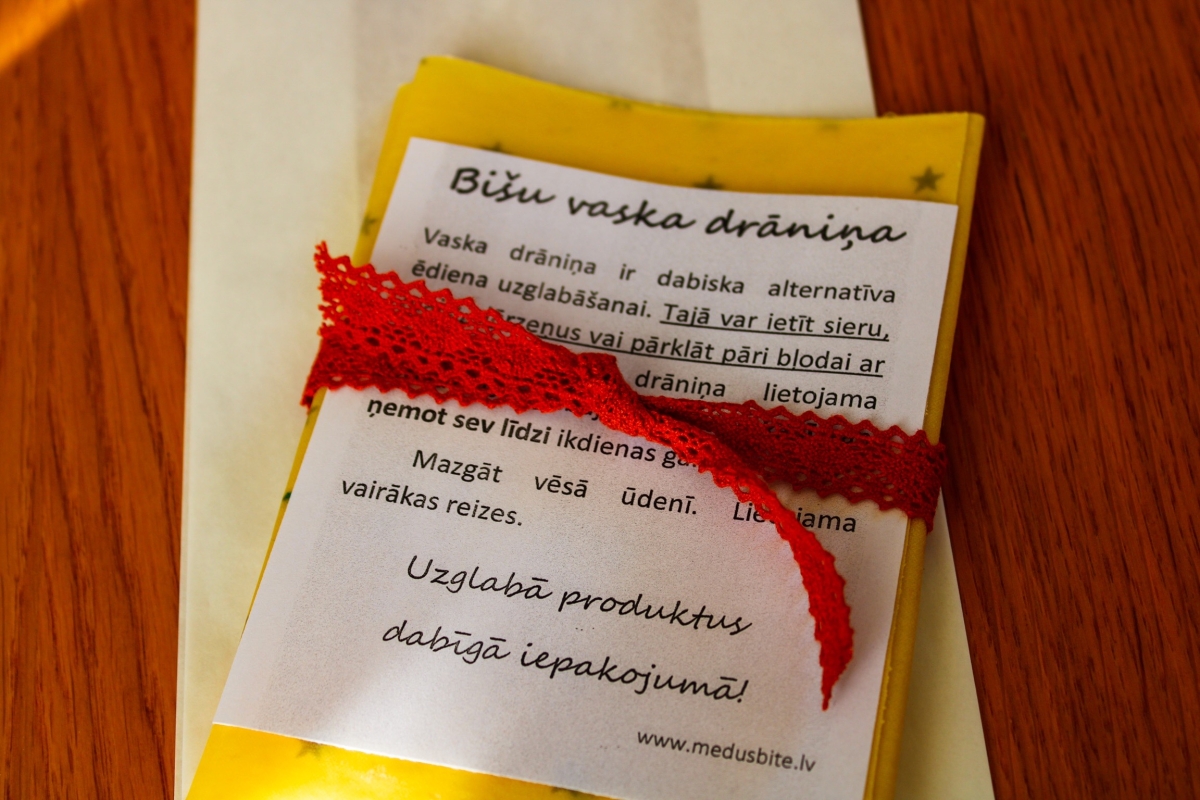 Bišu vaska drāniņa
Vaska drāniņa ir dabiska alternatīva
ēdiena uzglabāšanai. Tajā var ietīt sieru,
vai pārklāt pāri bļodai ar
drāniņa lietojama
ņemot sev līdzi ikdienas
Mazgāt vēsā ūdenī.
vairākas reizes.
Uzglabā produktus
dabīgā iepakojumā!
www.medusbite.lv